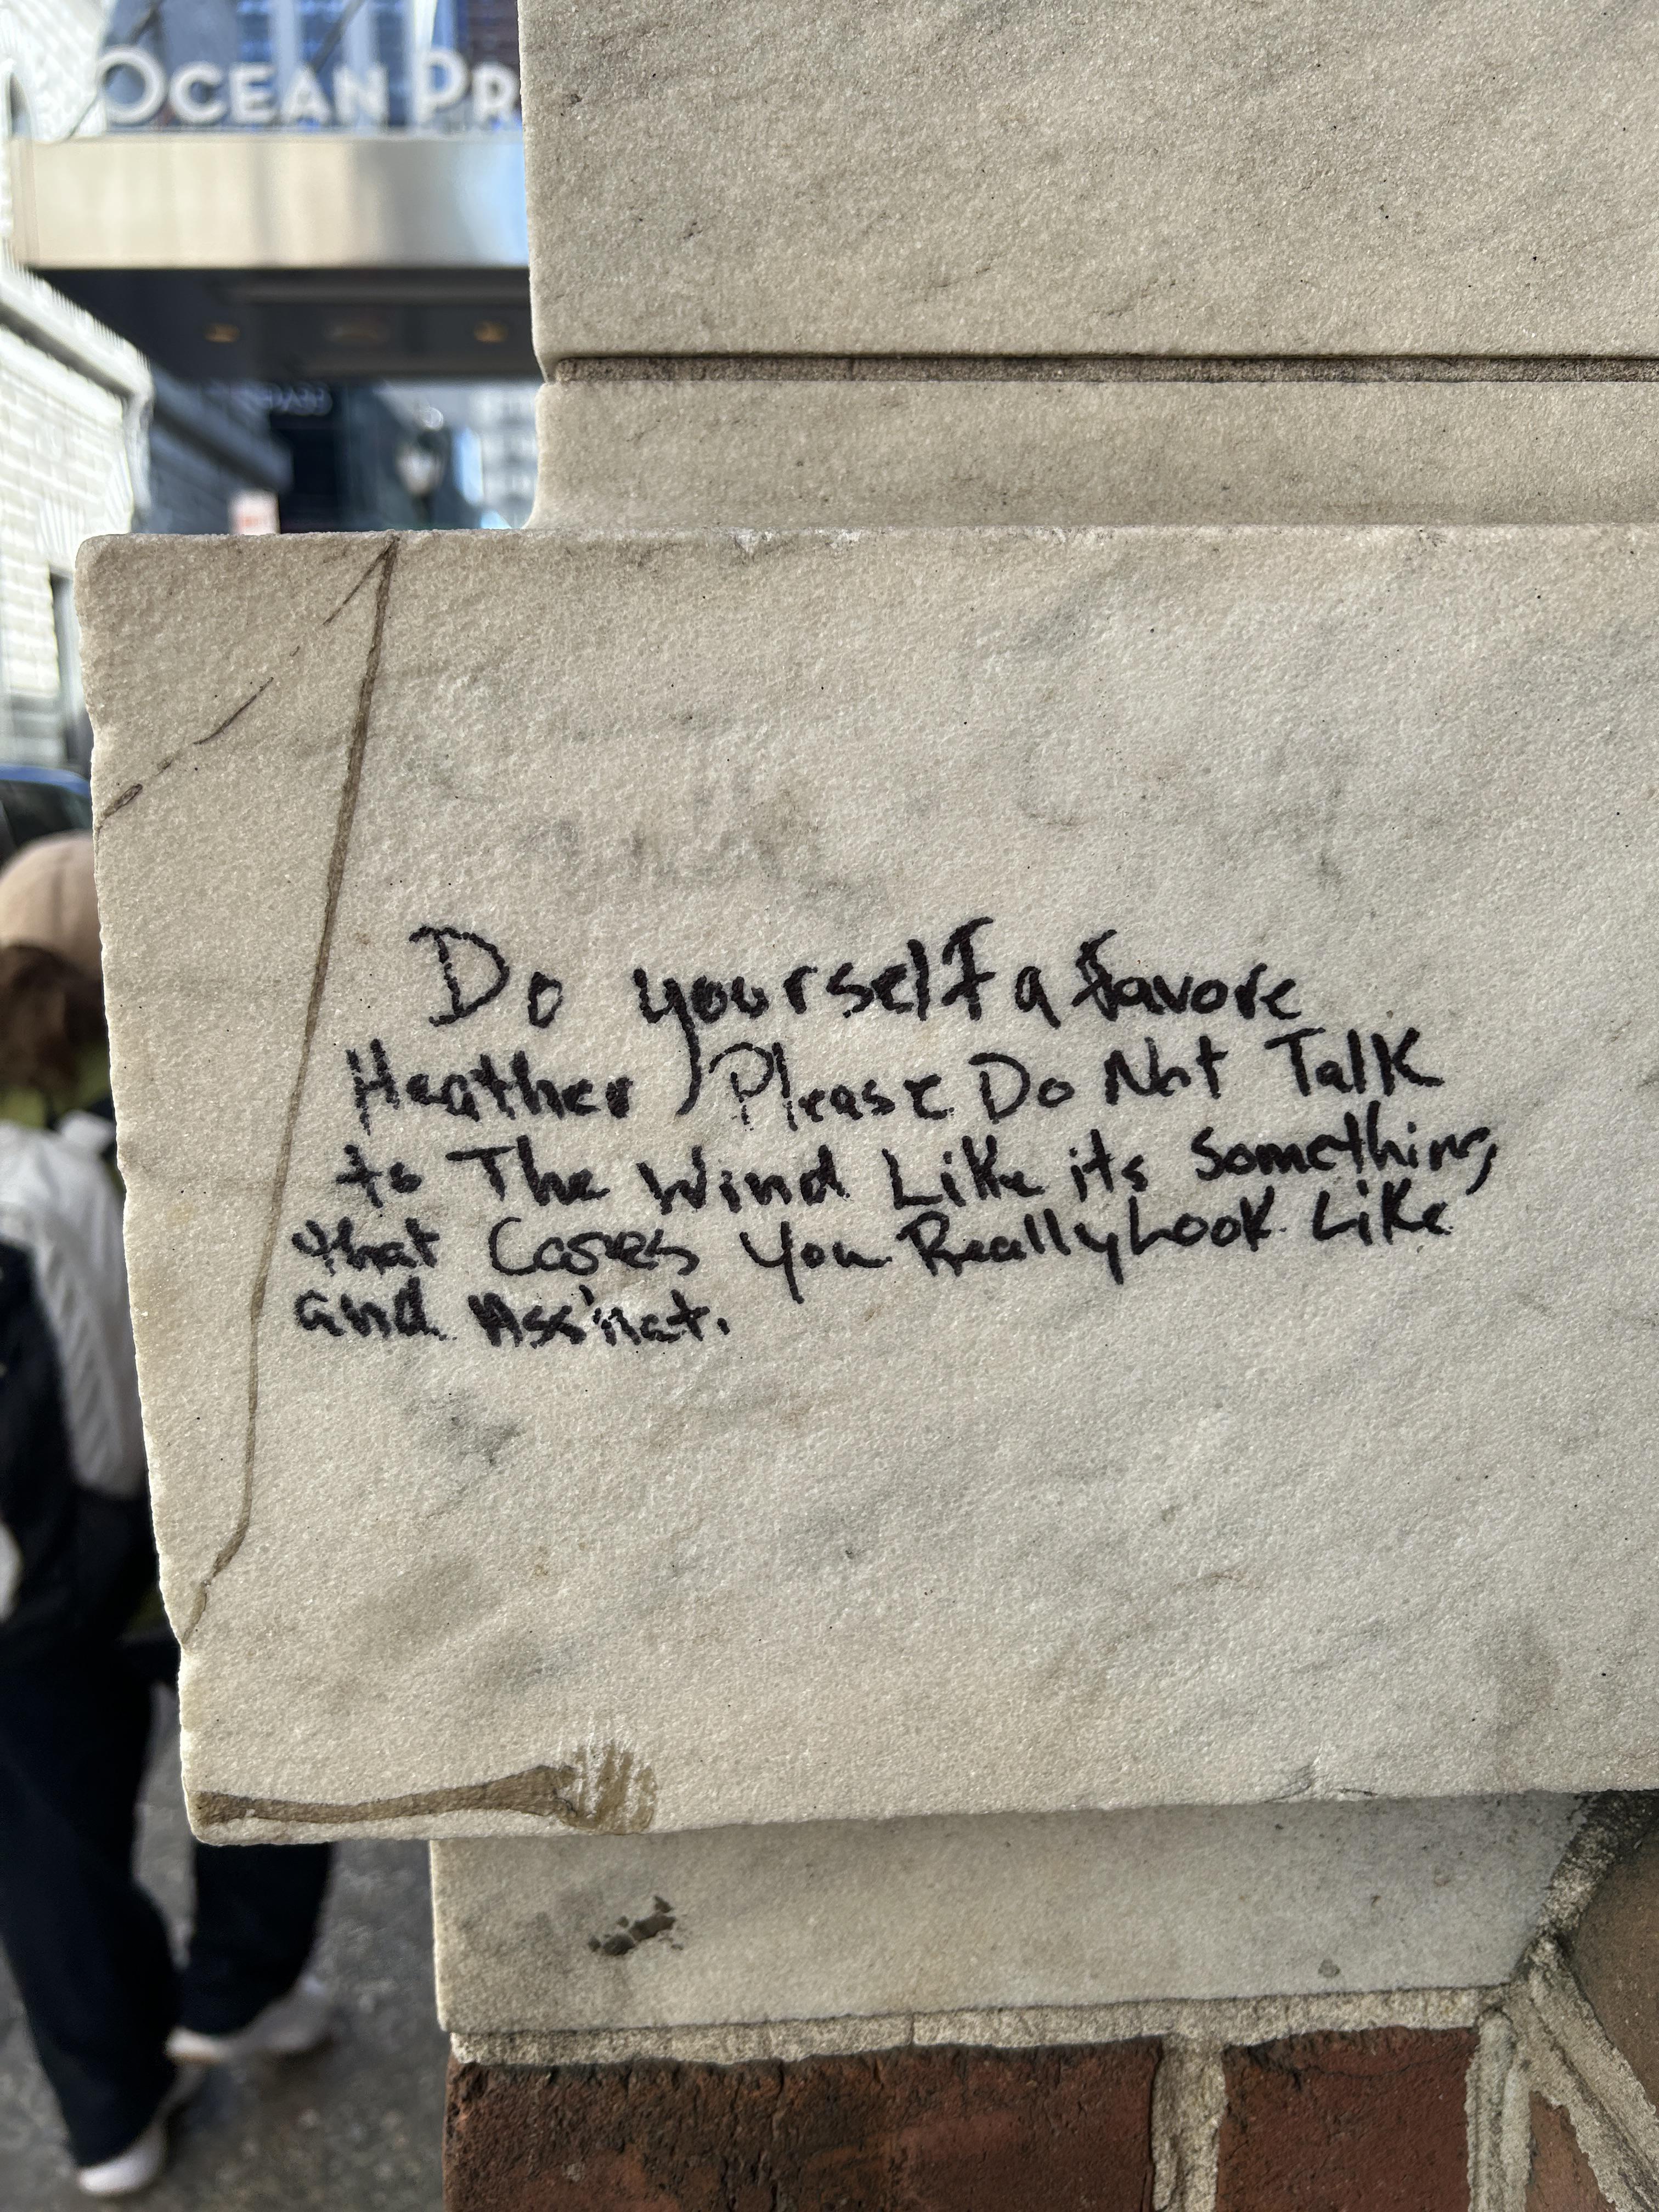 OCEAN PR
Do yourself a favore
Heather, Please Do Not Talk
to The Wind Like its Something
that Cases You Really Look Like
and Ass'nat.